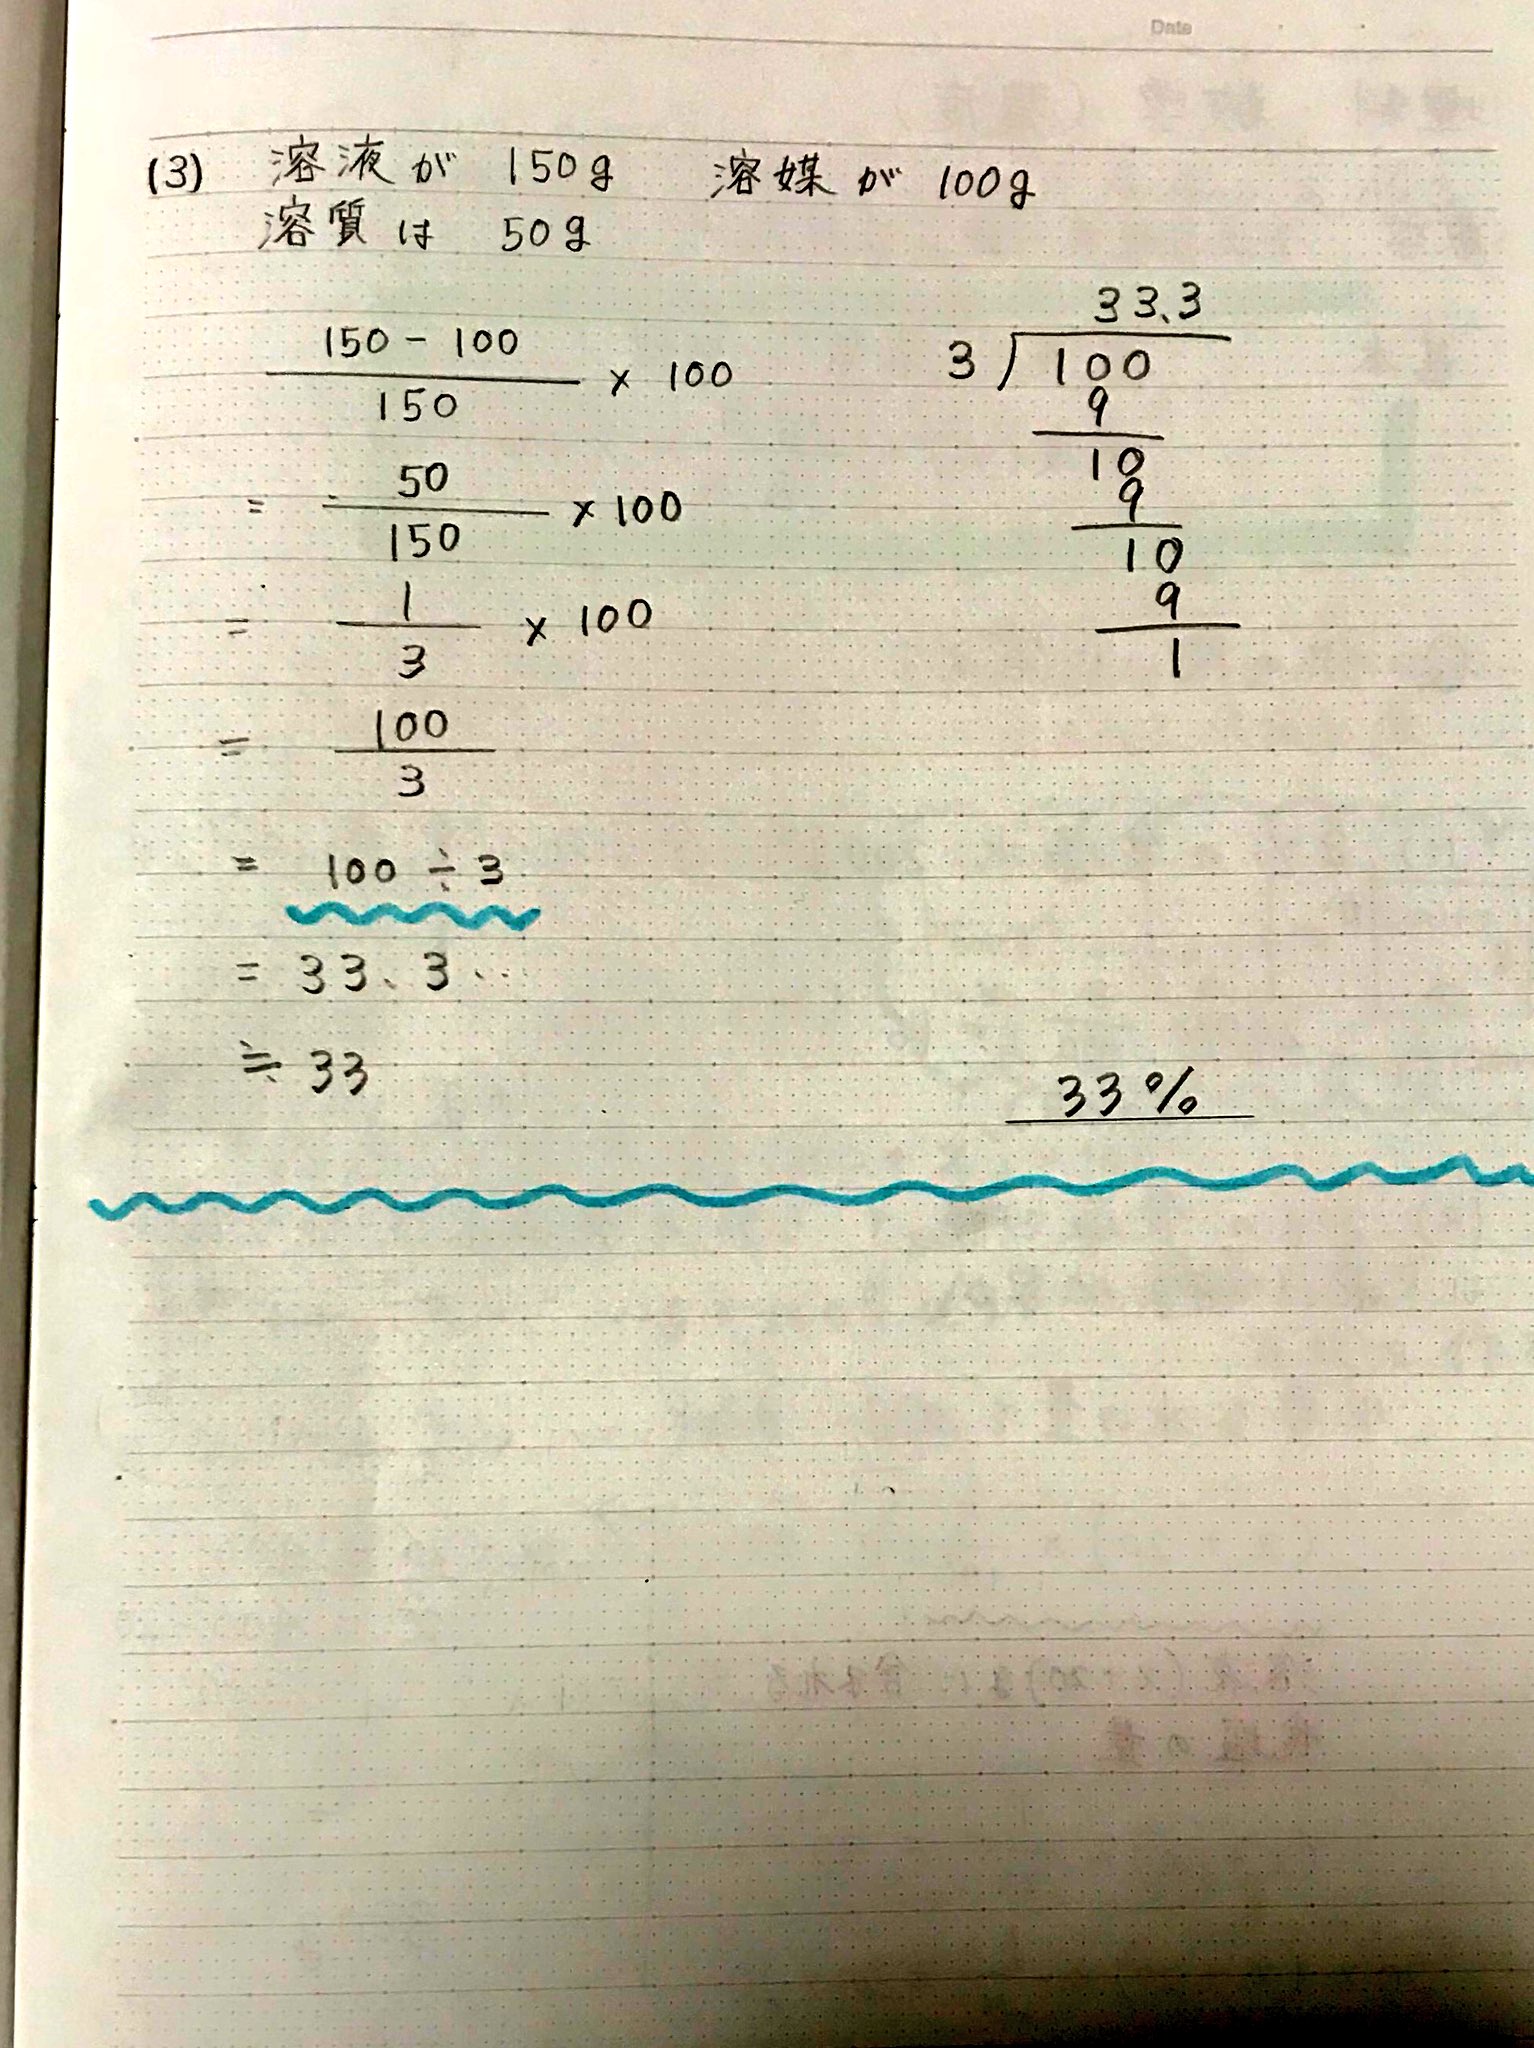 Date
(3) 溶液が 150g 溶媒が 100g
溶質は 50g
150 - 100
150
× 100
= 50
150
× 100
= 1
3
× 100
= 100
3
= 100 ÷ 3
= 33.3...
≒ 33
33.3
3 ) 100
9
10
9
10
9
1
33%